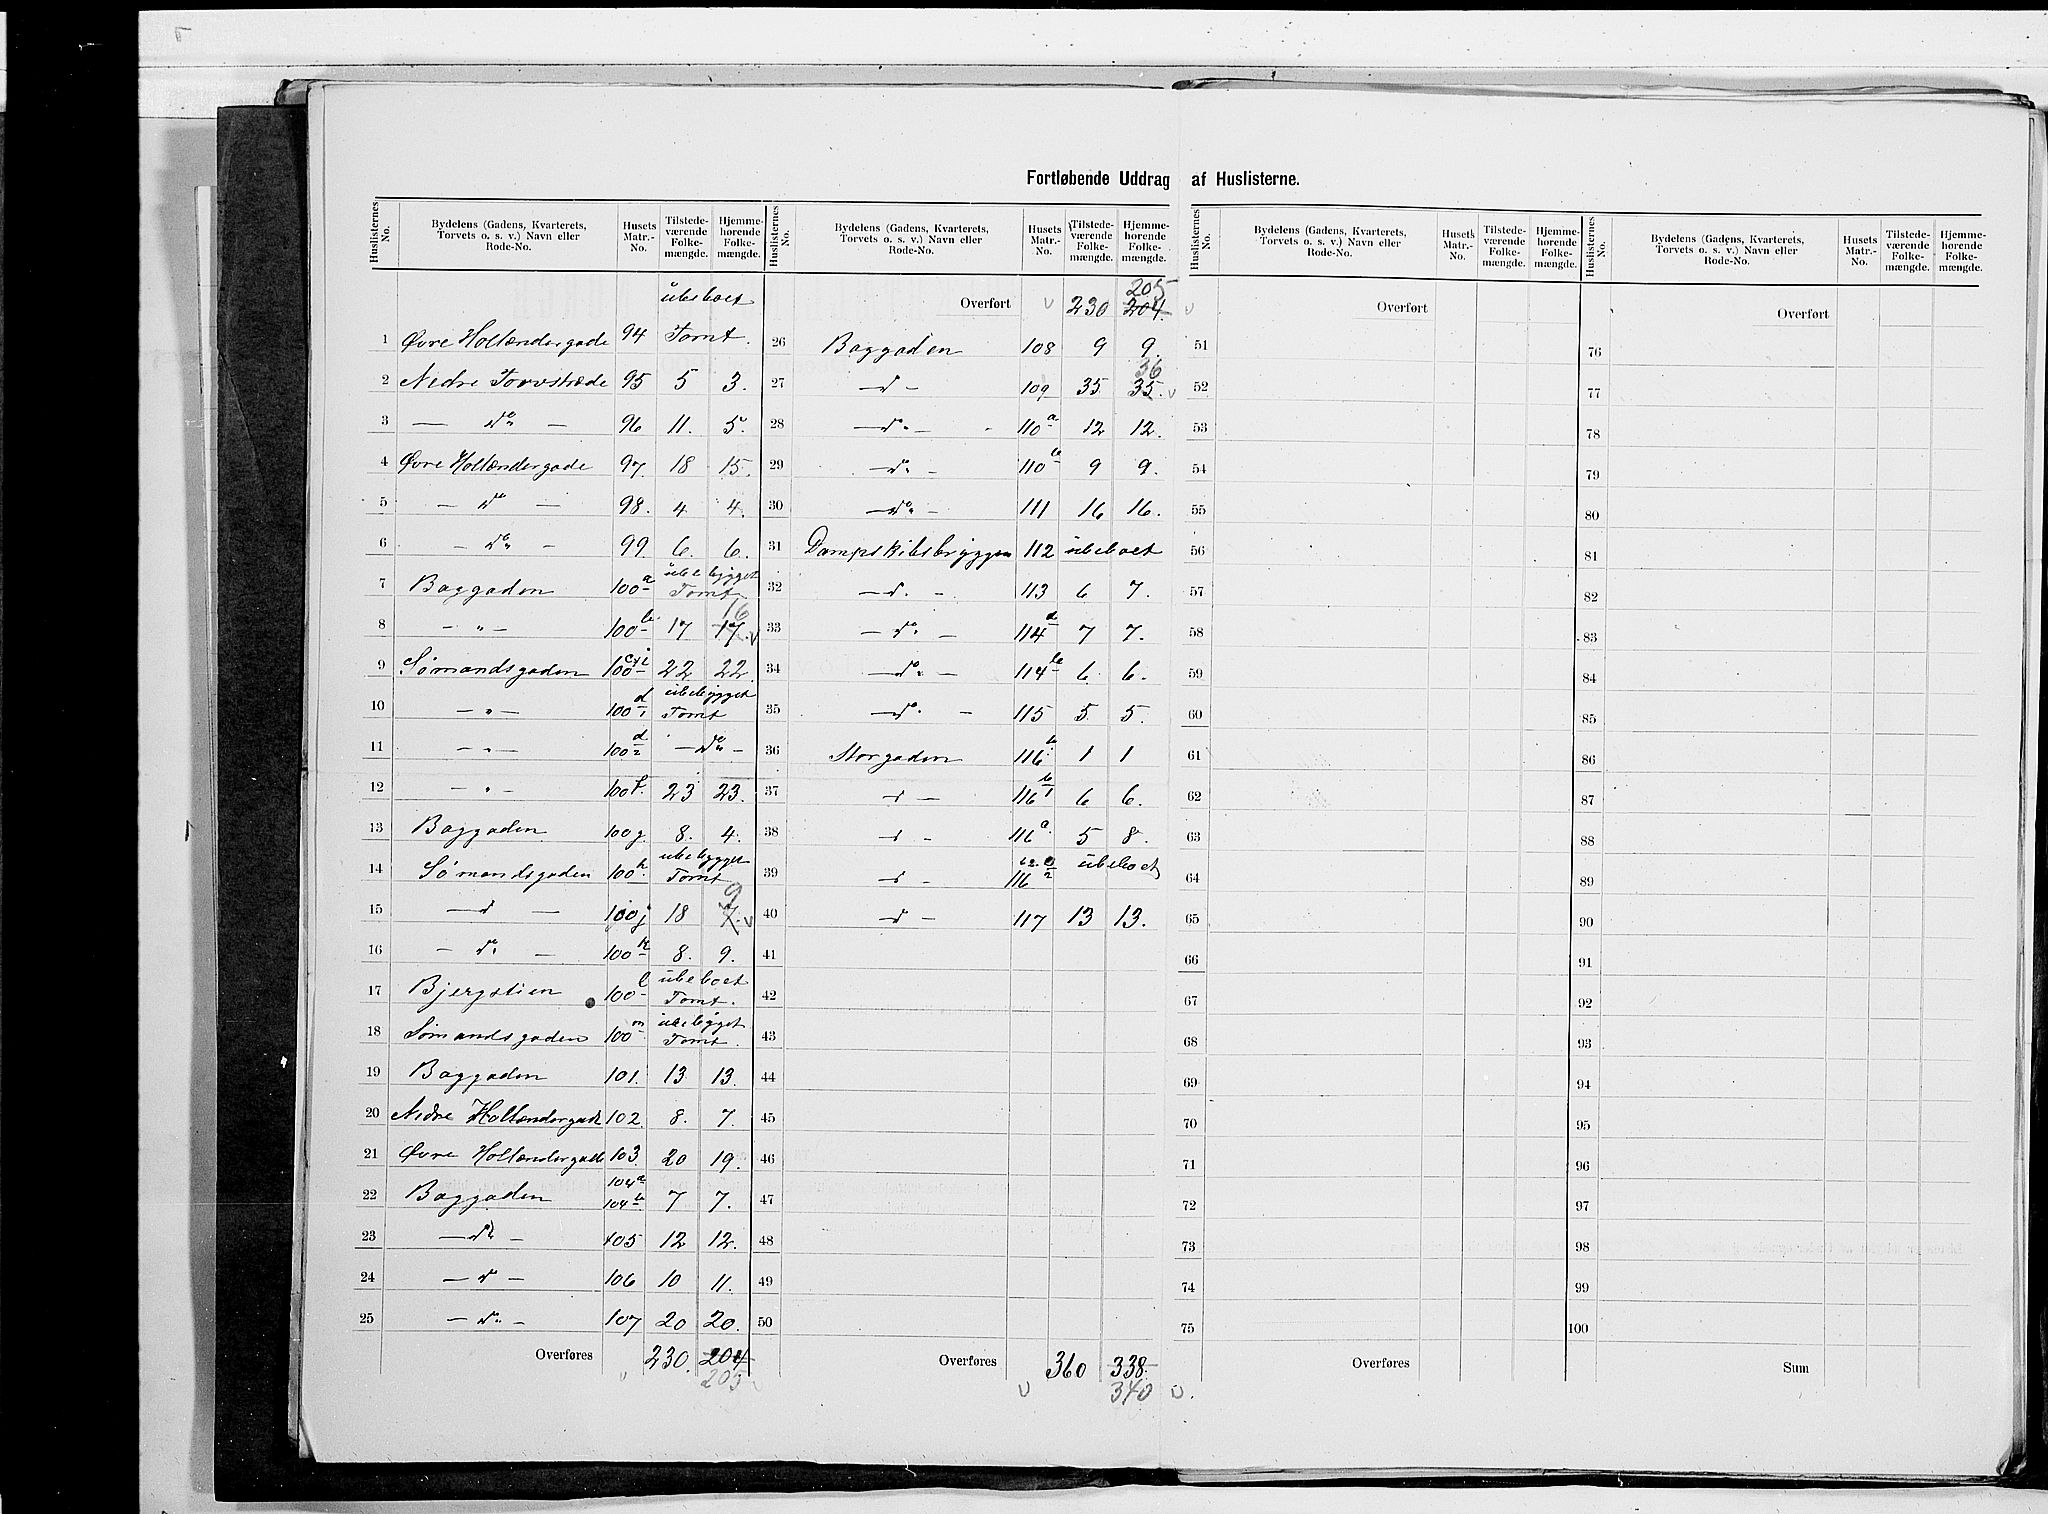 Fortløbende Uddrag af Huslisterne.
Huslisternes No. | Bydelens (Gadens, Kvarterets, Torvets o. s. v.) Navn eller Rode-No. | Husets Matr.-No. | Tilstedeværende Folkemængde. | Hjemmehørende Folkemængde.
1 Øvre Hollændergade 94 übeboet Tomt.
2 Nedre Torvstræde 95 5 3.
3 — do — 96 11. 5.
4 Øvre Hollændergade 97. 18 15.
5 — do — 98. 4 4.
6 — do — 99. 6. 6.
7 Baggaden 100a übebygget Tomt
8 — " — 100b 17 17. 16 v
9 Sømandsgaden 100c+i 22 22.
10 — " — 100d/1 übebygget Tomt
11 — " — 100d/2 — do —
12 — " — 100f. 23 23.
13 Baggaden 100g 8. 4.
14 Sømandsgaden 100h. übebygget Tomt
15 — d — 100j 18 7. 9 v
16 — do — 100k 8. 9.
17 Bjergstien 100l übeboet Tomt.
18 Sømandsgaden 100m übebygget Tomt.
19 Baggaden 101. 13 13.
20 Nedre Hollændergade 102. 8. 7.
21 Øvre Hollændergade 103. 20 19.
22 Baggaden 104a 104b 7 7.
23 — do — 105 12 12.
24 — d — 106 10 11.
25 — do — 107 20 20.
Overføres v 230. 204 205 v
Huslisternes No. | Bydelens (Gadens, Kvarterets, Torvets o. s. v.) Navn eller Rode-No. | Husets Matr.-No. | Tilstedeværende Folkemængde. | Hjemmehørende Folkemængde.
Overført v 230 204. 205 v
26 Baggaden 108 9 9.
27 — d — 109 35. 35. 36 v
28 — do. — 110a 12 12.
29 — do. — 110b 9 9.
30 — do. — 111 16 16.
31 Dampskibsbryggen 112 übeboet
32 — d. — 113 6 7.
33 — do. — 114a 7 7.
34 — do. — 114b 6 6.
35 — do. — 115 5. 5.
36 Storgaden 116b 1 1
37 — d — 116b/1 6 6.
38 — d — 116a. 5 8.
39 — d — 116 übeboet
40 — d — 117 13 13.
41
42
43
44
45
46
47
48
49
50
Overføres v 360 338. 340 v.
Huslisternes No. | Bydelens (Gadens, Kvarterets, Torvets o. s. v.) Navn eller Rode-No. | Husets Matr.-No. | Tilstedeværende Folkemængde. | Hjemmehørende Folkemængde.
Overført
51
52
53
54
55
56
57
58
59
60
61
62
63
64
65
66
67
68
69
70
71
72
73
74
75
Overføres
Huslisternes No. | Bydelens (Gadens, Kvarterets, Torvets o. s. v.) Navn eller Rode-No. | Husets Matr.-No. | Tilstedeværende Folkemængde. | Hjemmehørende Folkemængde.
Overført
76
77
78
79
80
81
82
83
84
85
86
87
88
89
90
91
92
93
94
95
96
97
98
99
100
Sum